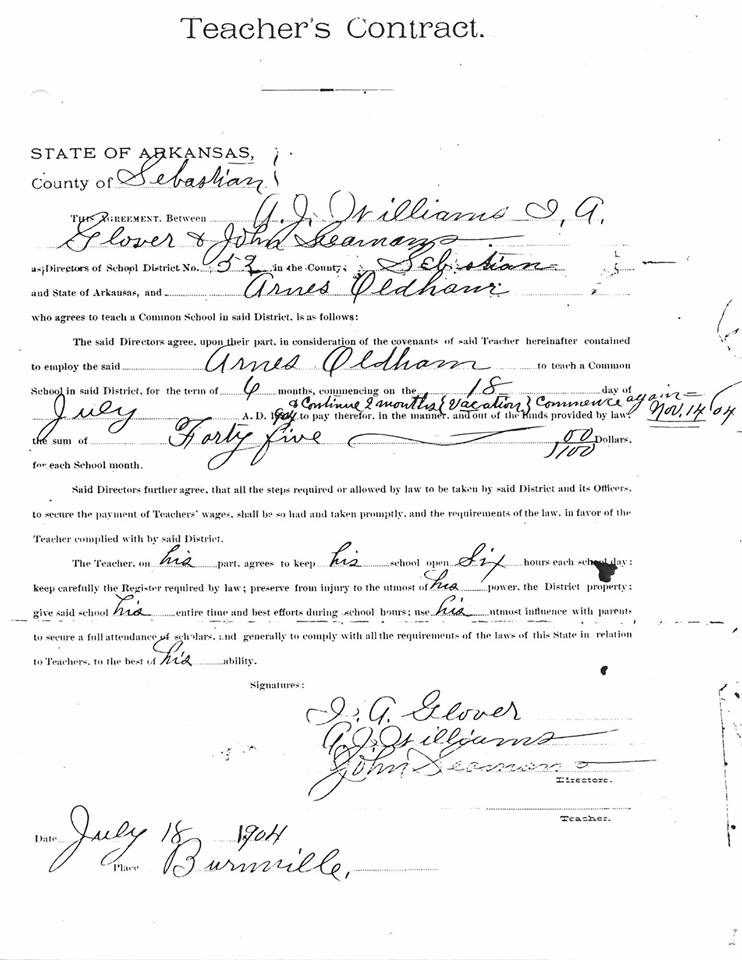 Teacher's Contract.
STATE OF ARKANSAS,
County of Sebastian
THIS AGREEMENT, Between A. J. Williams I. A.
Glover & John Seamans
as Directors of School District No. 52 in the County, Sebastian
and State of Arkansas, and Arnes Oldham
who agrees to teach a Common School in said District, is as follows:
The said Directors agree, upon their part, in consideration of the covenants of said Teacher hereinafter contained
to employ the said Arnes Oldham to teach a Common
School in said District, for the term of 6 months, commencing on the 18 day of
& Continue 2 months {Vacation} Commence again = Nov. 14 04
July A. D. 1904 to pay therefor, in the manner, and out of the funds provided by law,
the sum of Forty five 00/100 Dollars,
for each School month.
Said Directors further agree, that all the steps required or allowed by law to be taken by said District and its Officers,
to secure the payment of Teachers' wages, shall be so had and taken promptly, and the requirements of the law, in favor of the
Teacher complied with by said District.
The Teacher, on his part, agrees to keep his school open Six hours each school day;
keep carefully the Register required by law; preserve from injury to the utmost of his power, the District property;
give said school his entire time and best efforts during school hours; use his utmost influence with parents
to secure a full attendance of scholars, and generally to comply with all the requirements of the laws of this State in relation
to Teachers, to the best of his ability.
Signatures:
I. A. Glover
A. J. Williams
John Seamans
Directors.
Teacher.
Date July 18 1904
Place Burnville,